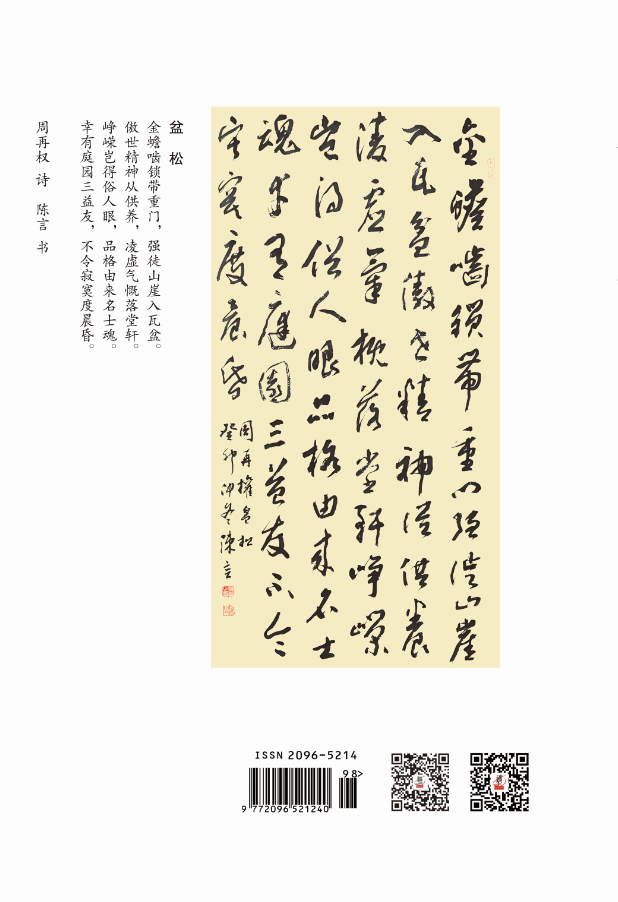 盆 松
金蟾啮锁带重门，强徙山崖入瓦盆。
傲世精神从供养，凌虚气慨落堂轩。
峥嵘岂得俗人眼，品格由来名士魂。
幸有庭园三益友，不令寂寞度晨昏。
周再权 诗 陈言 书
金蟾嚙鎖帶重門強徙山崖
入瓦盆傲世精神從供養
凌虛氣概落堂軒崢嶸
豈得俗人眼品格由來名士
魂幸有庭園三益友不令
寂寞度晨昏
周再權盆松
癸卯仲冬陳言
ISSN 2096-5214
98>
9 772096 521240